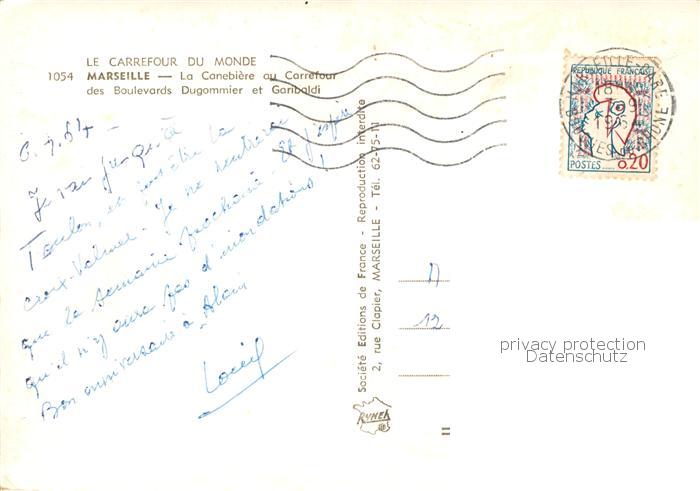 LE CARREFOUR DU MONDE
1054 MARSEILLE — La Canebière au Carrefour
des Boulevards Dugommier et Garibaldi
Je vais jusqu'à
Toulon, et ensuite la
Croix-Valmer. Je ne rentrerai
que la semaine prochaine. Et j'espère
qu'il n'y aura pas d'inondations !
Bon anniversaire à Alain
Société Editions de France - Reproduction interdite
2, rue Clapier, MARSEILLE - Tél. 62-75-11
RYNER
12
REPUBLIQUE FRANÇAISE
POSTES
0.20
MARSEILLE GARE
18
privacy protection
Datenschutz